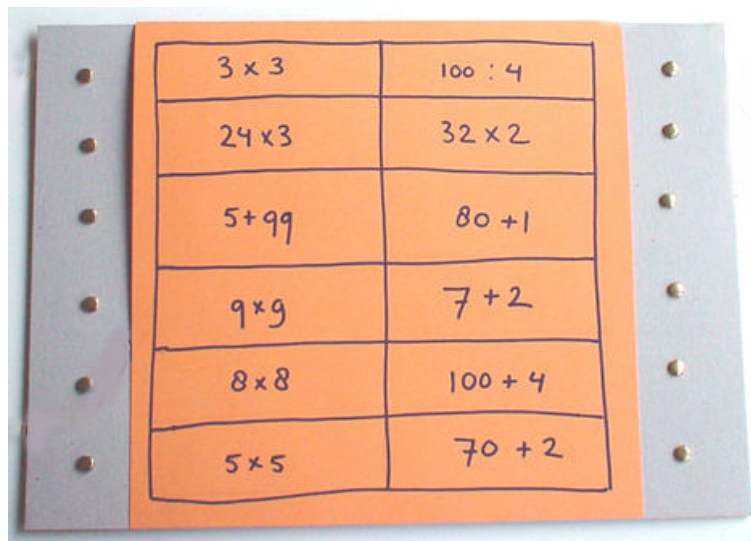 3 x 3 100 : 4
24 x 3 32 x 2
5 + 99 80 + 1
9 x 9 7 + 2
8 x 8 100 + 4
5 x 5 70 + 2